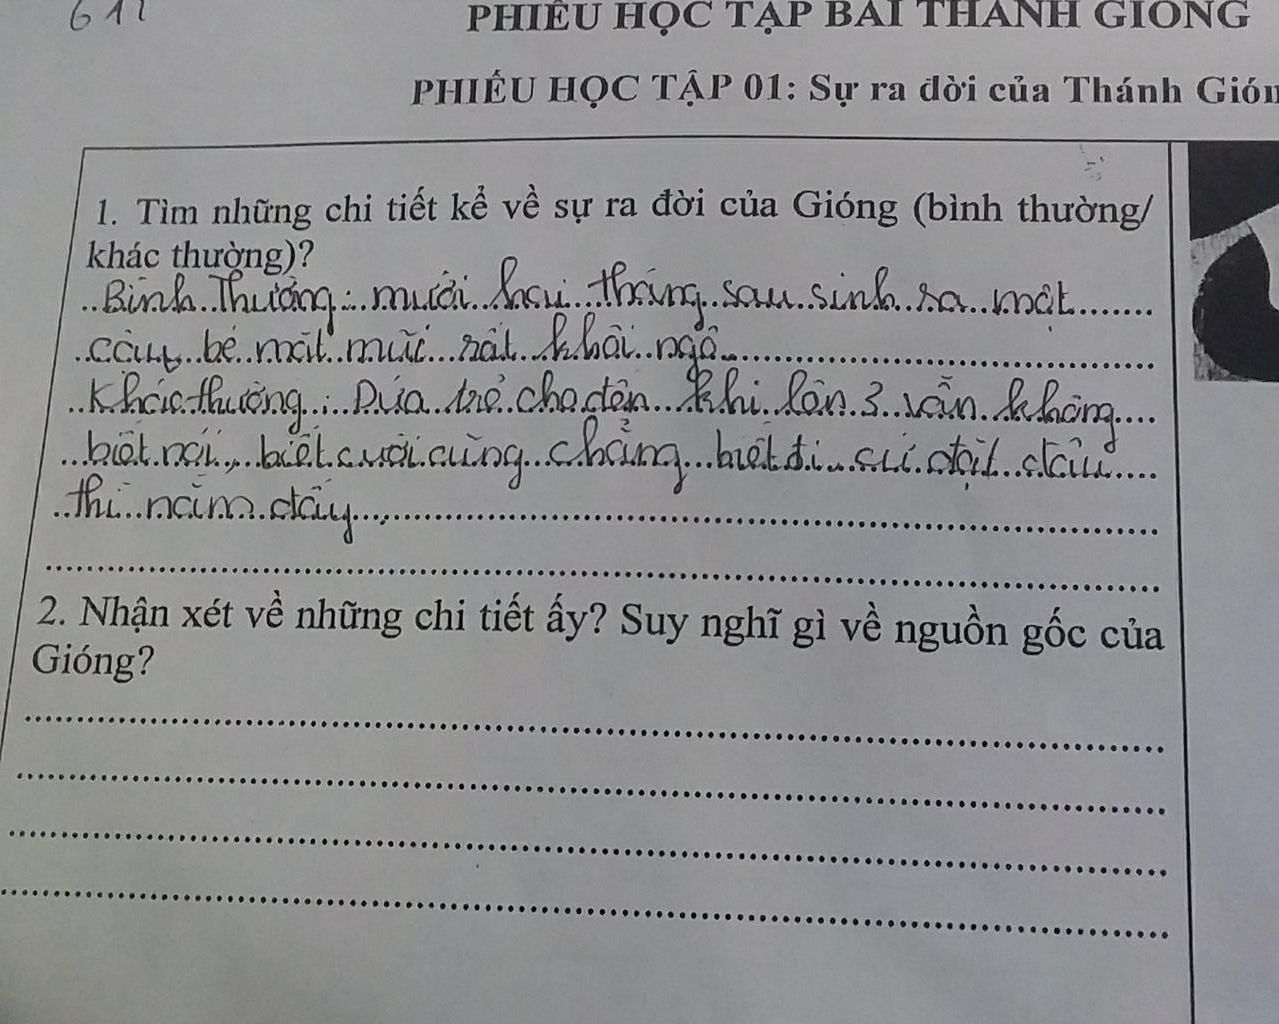 612
PHIẾU HỌC TẬP BÀI THÁNH GIÓNG
PHIẾU HỌC TẬP 01: Sự ra đời của Thánh Gión
1. Tìm những chi tiết kể về sự ra đời của Gióng (bình thường/
khác thường)?
Bình Thường: mười hai tháng sau sinh ra một
cậu bé mặt mũi rất khôi ngô
Khác thường: Đứa trẻ cho đến khi lên 3 vẫn không
biết nói, biết cười cũng chẳng biết đi, cứ đặt đâu
thì nằm đấy.
2. Nhận xét về những chi tiết ấy? Suy nghĩ gì về nguồn gốc của
Gióng?